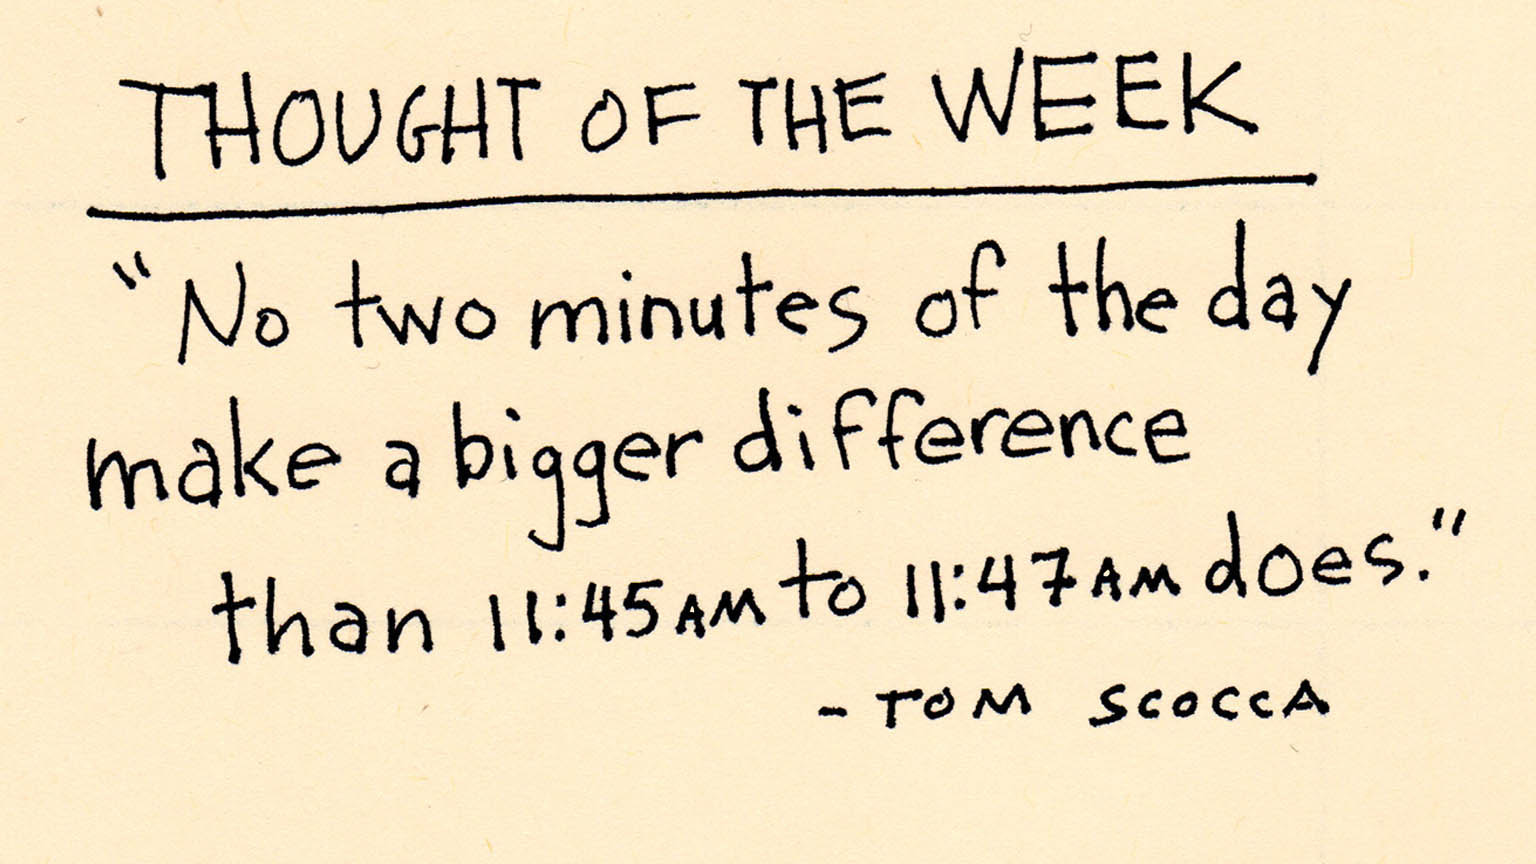 THOUGHT OF THE WEEK
"No two minutes of the day
make a bigger difference
than 11:45AM to 11:47AM does."
- TOM SCOCCA